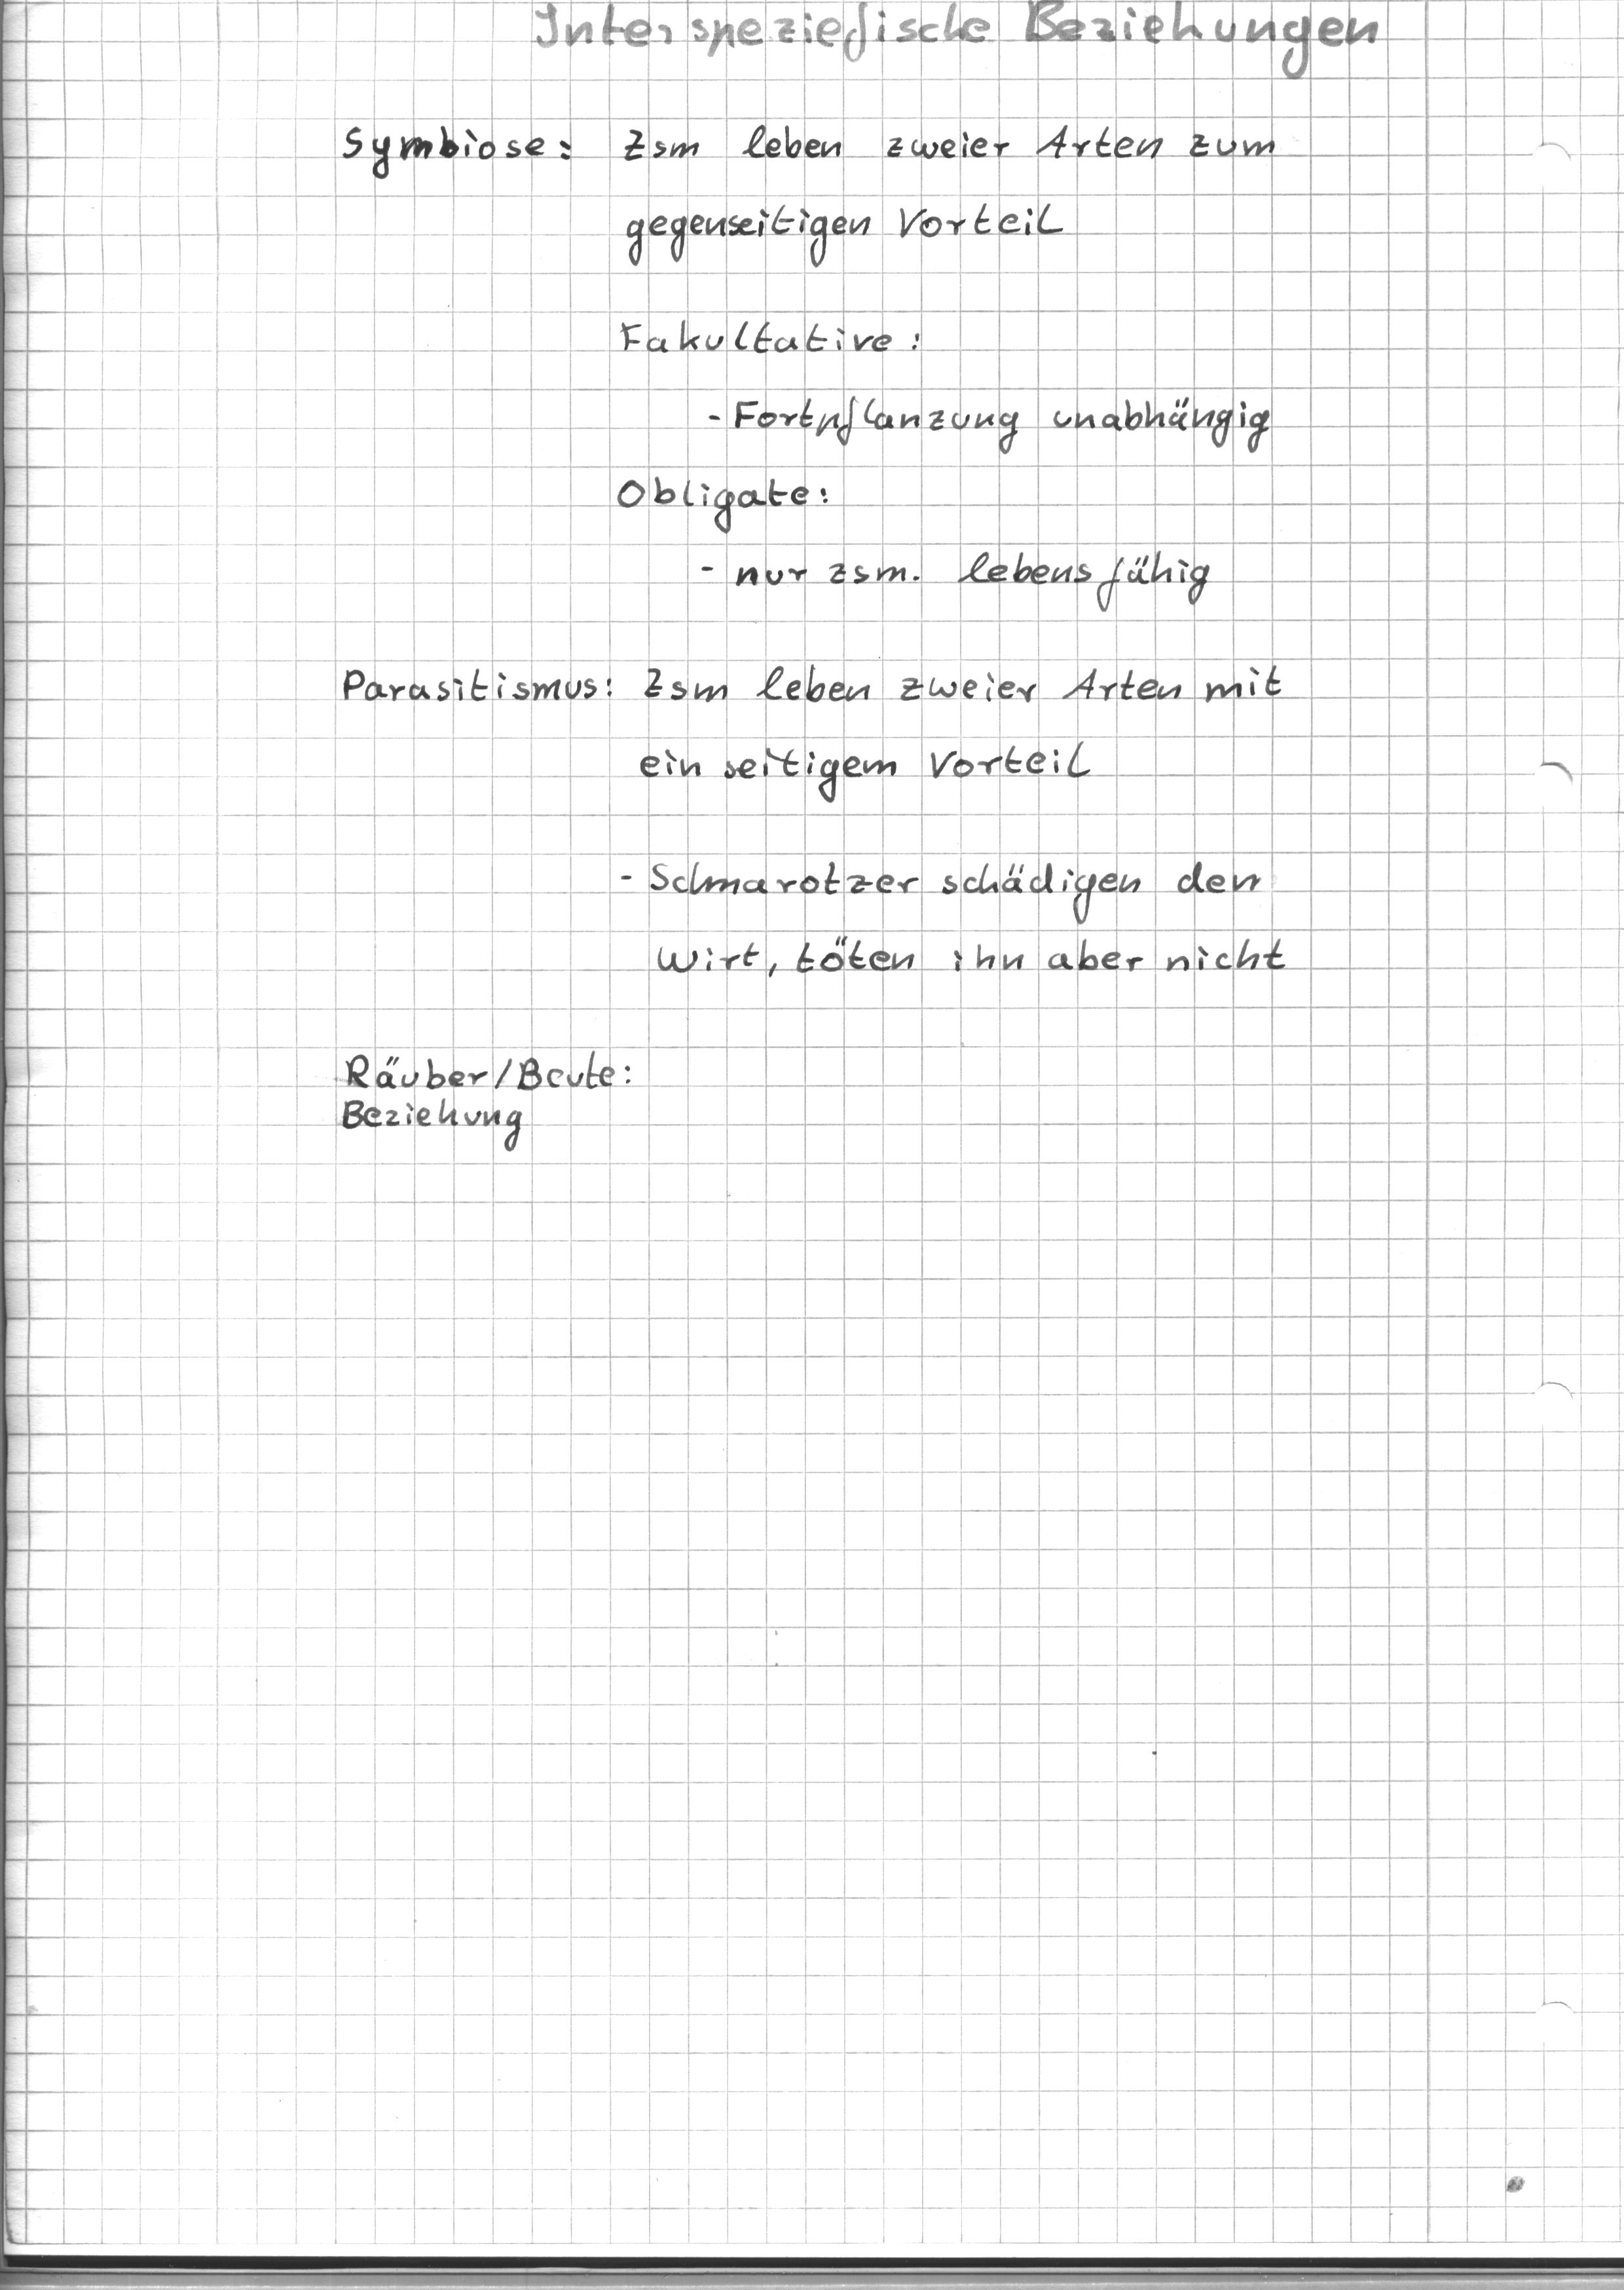 Interspeziefische Beziehungen
Symbiose: Zsm leben zweier Arten zum
gegenseitigen Vorteil
Fakultative:
- Fortpflanzung unabhängig
Obligate:
- nur zsm. lebensfähig
Parasitismus: Zsm leben zweier Arten mit
einseitigem Vorteil
- Schmarotzer schädigen den
Wirt, töten ihn aber nicht
Räuber/Beute:
Beziehung